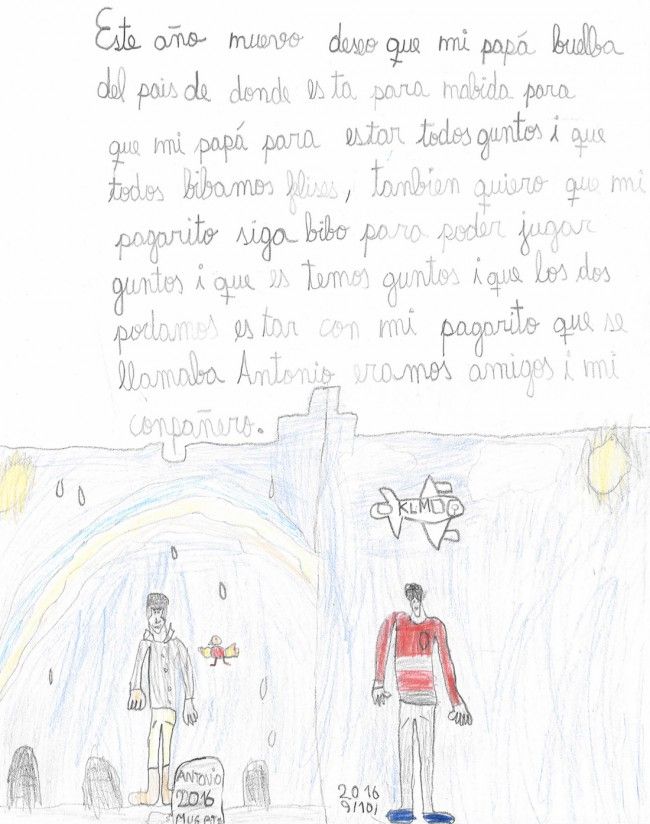 Este año nuevo deseo que mi papá buelba
del pais de donde es ta para mabida para
que mi papá para estar todos guntos i que
todos bibamos flises, tanbien quiero que mi
pagarito siga bibo para poder jugar
guntos i que es temos guntos i que los dos
podamos es tar con mi pagarito que se
llamaba Antonio eramos amigos i mi
conpañero.
KLM
ANTONIO
2016
MUERTO
2016
9/10/